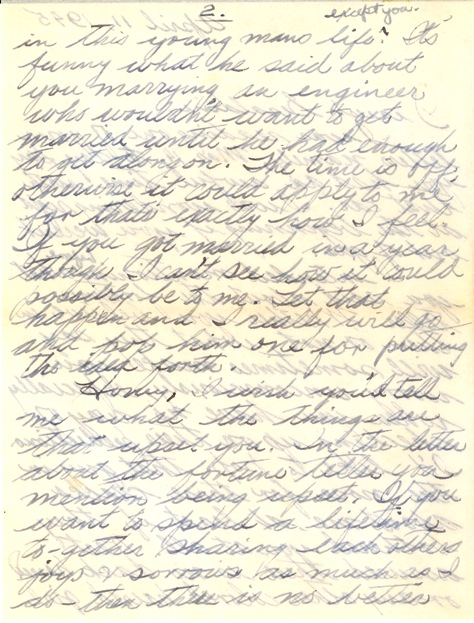 2.
except you.
in this young mans life? It's
funny what he said about
you marrying an engineer
who wouldn't want to get
married until he had enough
to get along on. The time is off,
otherwise it could apply to me
for that's exactly how I feel.
If you got married in a year
though I can't see how it could
possibly be to me. Let that
happen and I really will go
and pop him one for putting
the idea forth.
Honey, I wish you'd tell
me what the things are
that upset you. In the letter
about the fortune teller you
mention being upset. If you
want to spend a lifetime
to-gether sharing each others
joys & sorrows as much as I
do - then there is no better